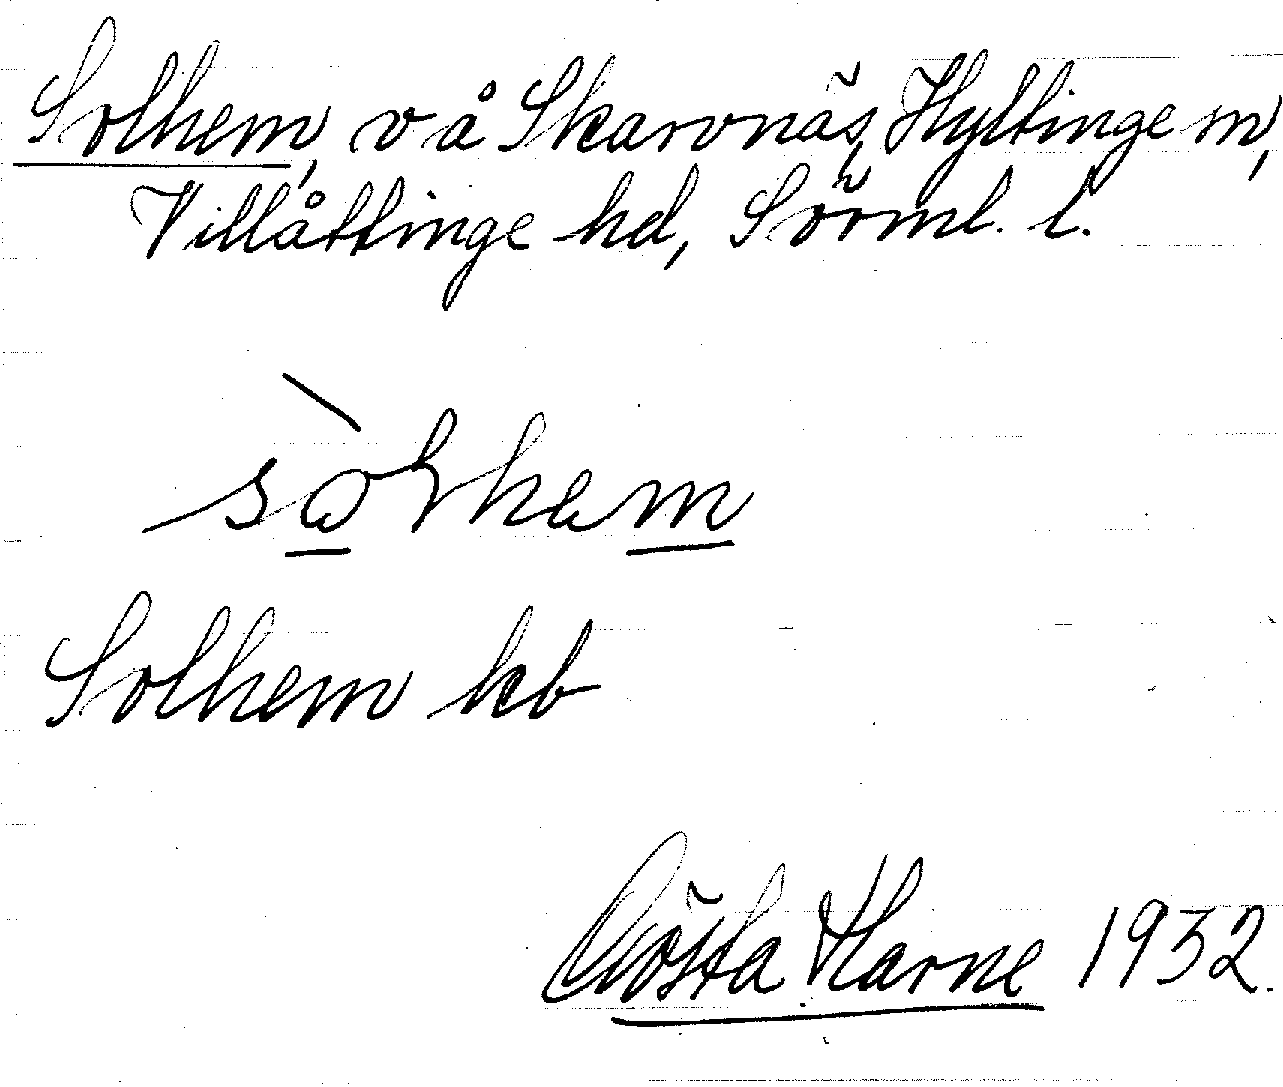 Solhem, v å Skarvnäs, Hyltinge sn,
Villåttinge hd, Sörml. l.
Solhem kb
Gösta Harne 1932.